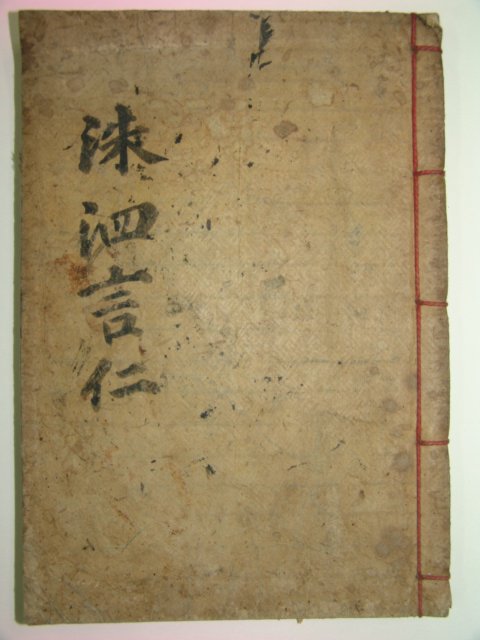 洙泗言仁